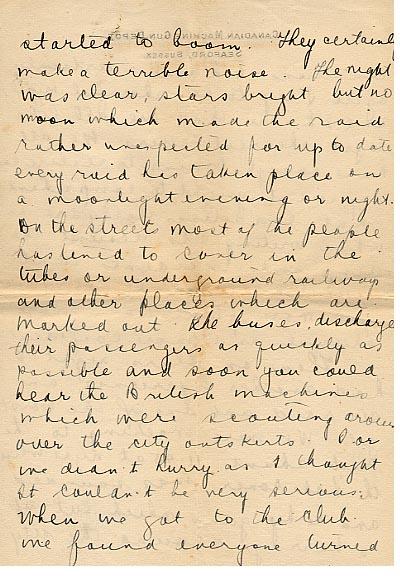 started to boom. They certainly
make a terrible noise. The night
was clear, stars bright but no
moon which made the raid
rather unexpected for up to date
every raid has taken place on
a moonlight evening or night.
On the streets most of the people
hastened to cover in the
tubes or underground railways
and other places which are
marked out. The buses, discharge
their passengers as quickly as
possible and soon you could
hear the British machines
which were scouting aroun
over the city outskirts. I or
we didn't hurry as I thought
it couldn't be very serious.
When we got to the club
we found everyone turned
CANADIAN MACHINE GUN DEPOT
SEAFORD, SUSSEX